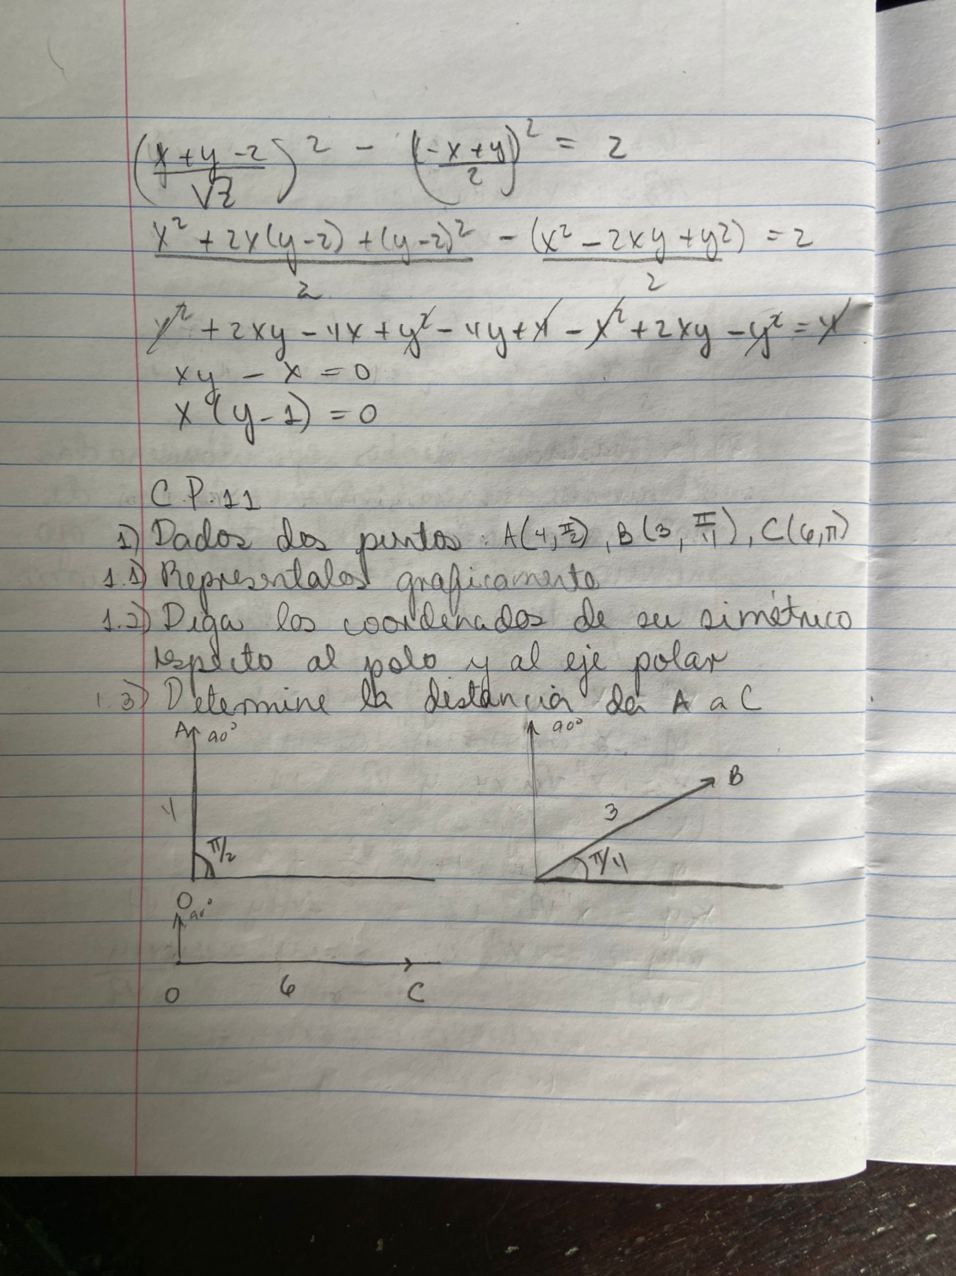 (x+y-2/√2)² - (-x+y/2)² = 2
x² + 2x(y-2) + (y-2)²/2 - (x² - 2xy + y2)/2 = 2
x² + 2xy - 4x + y² - 4y + 4 - x² + 2xy - y² = 4
xy - x = 0
x (y-1) = 0
C P. 11
1) Dados dos puntos: A(4, π/2), B(3, π/4), C(6, π)
1.1) Represéntalos graficamente
1.2) Diga las coordenadas de su simétrico
respecto al polo y al eje polar
1.3) Determine la distancia de A a C
A 90° 90°
B
4 π/2 3 π/4
O
90°
O 6 C